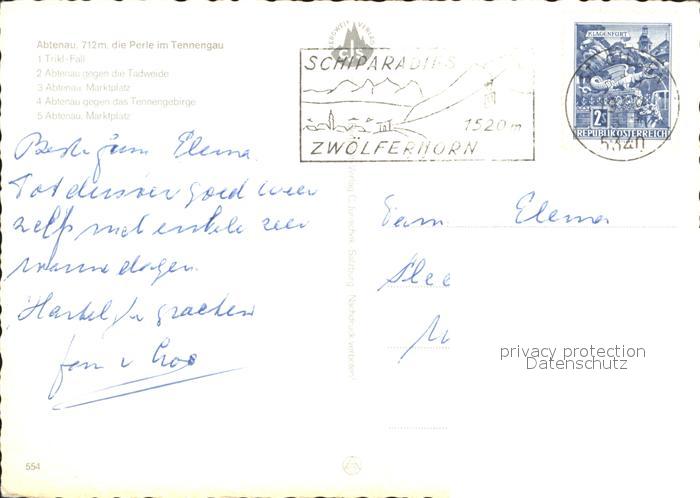 Abtenau, 712 m, die Perle im Tennengau
1 Trikl-Fall
2 Abtenau gegen die Tadweide
3 Abtenau, Marktplatz
4 Abtenau gegen das Tennengebirge
5 Abtenau, Marktplatz
SCHIPARADIES
1520 m
ZWÖLFERHORN
CJS
KLAGENFURT
2S
REPUBLIK ÖSTERREICH
5340
Beste fam Elema
Tot dusver goed weer
zelfs met enkele zeer
warme dagen.
Hartel. groeten
fam
Fam. Elema
privacy protection
Datenschutz
554